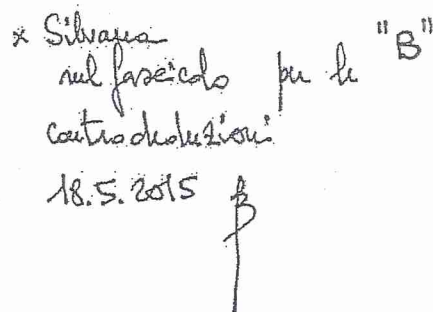 x Silvana "B"
nel fascicolo per le
controdeduzioni
18.5.2015